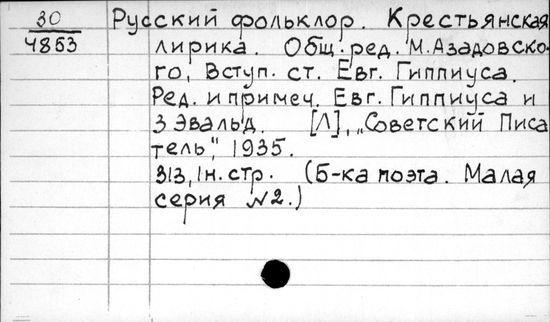 30 Русский фольклор. Крестьянская
4853 лирика. Общ. ред. М. Азадовско-
го, Вступ. ст. Евг. Гиппиуса.
Ред. и примеч. Евг. Гиппиуса и
З Эвальд. [Л], „Советский Писа
тель", 1935.
313, 1н. стр. (Б-ка поэта. Малая
серия №2.)